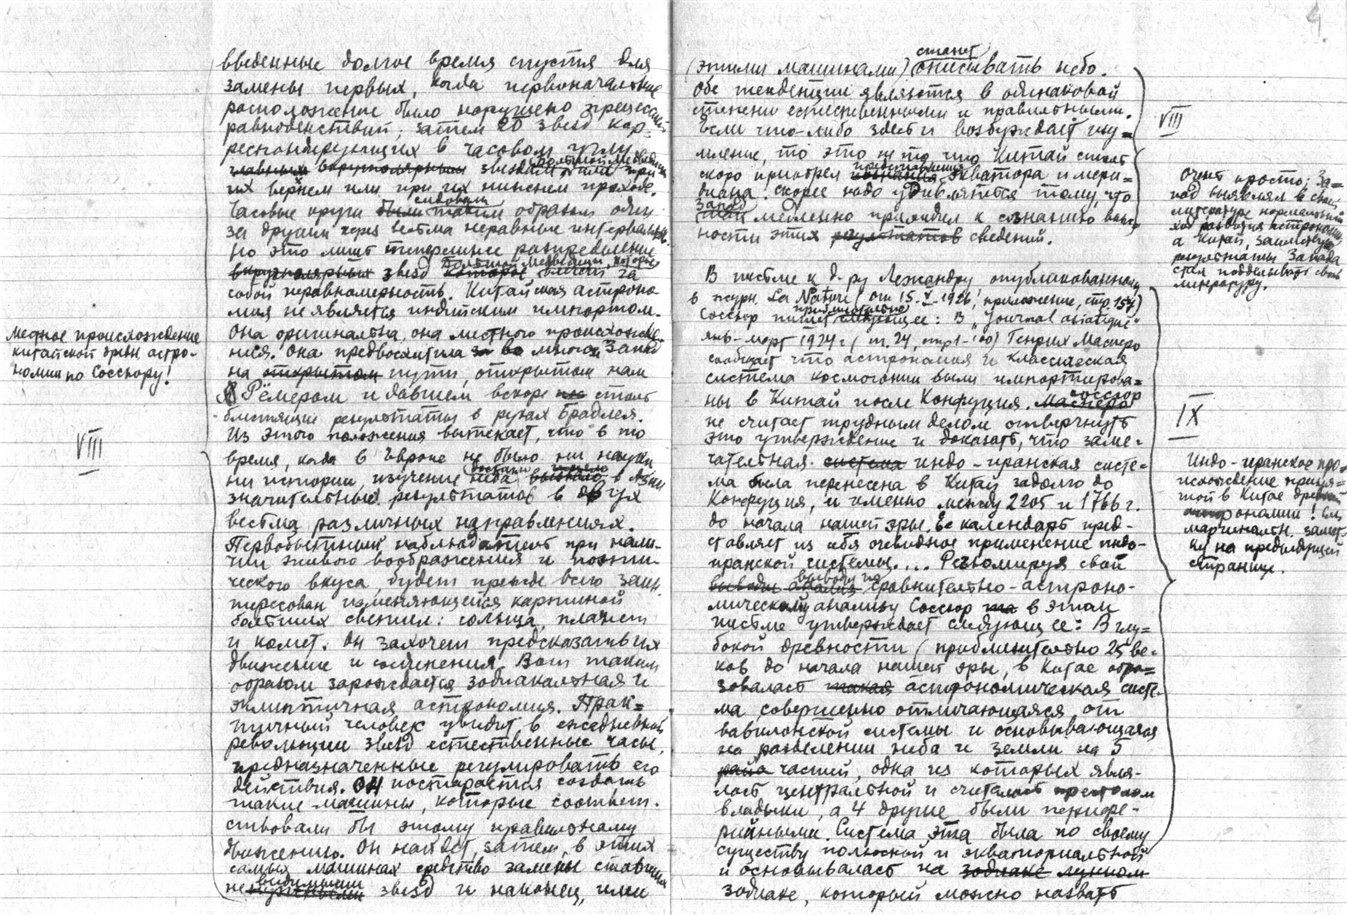 введенные долгое время спустя для
замены первых, когда первоначальное
расположение было нарушено прецессией
равноденствий; затем 20 звезд кор-
респондирующих в часовом углу
звездам Большой Медведицы или при
их верхнем или при их нижнем проходе.
Часовые круги следовали таким образом один
за другим через весьма неравные интервалы.
Но это лишь теперешнее распределение
звезд Большой Медведицы, которое влечет за
собой неравномерность. Китайская астроно-
мия не является индийским импортом.
Она оригинальна, она местного происхожде-
ния. Она предвосхитила много Запад
на пути, открытом нам
Рёмером и давшем вскоре столь
блестящие результаты в руках Брадлея.
Из этого положения вытекает, что в то
время, когда в Европе не было ни науки
ни истории, изучение неба в Азии
значительных результатов в двух
весьма различных направлениях.
Первобытный наблюдатель при нали-
чии живого воображения и поэти-
ческого вкуса будет прежде всего заин-
тересован изменяющейся картиной
больших светил: солнца, планет
и комет. Он захочет предсказать их
движение и сочетания. Вот таким
образом зарождается зодиакальная и
эклиптичная астрономия. Прак-
тичный человек увидит в ежедневной
революции звезд естественные часы,
предназначенные регулировать его
действия. Он постарается создать
такие машины, которые соответ-
ствовали бы этому правильному
движению. Он найдет, затем, в этих
самых машинах средство замены ставших
невидимыми звезд и наконец, ими
Местное происхождение
китайской древн. астро-
номии по Соссюру!
VIII
4.
(этими машинами) станет описывать небо.
Обе тенденции являются в одинаковой
степени естественными и правильными.
Если что-либо здесь и возбуждает изу-
мление, то это не то что Китай столь
скоро приобрел экватора и мери-
диана. Скорее надо удивляться тому, что
Запад медленно приходил к сознанию важ-
ности этих результатов сведений.
VIII
Очень просто: За-
пад выявлял в своей
литературе нормальный
ход развития астрономии,
а Китай, заимствуя
результаты Запада
стал подделывать свою
литературу.
В письме к д-ру Лежандру опубликованному
в журн. La Nature (от 15.V.1926, приложение, стр. 154)
Соссюр пишет приблизительно следующее: В „Journal asiatique"
янв-март 1924 г. (т. 24, стр 1-100) Генрих Масперо
сообщает что астрономия и классическая
система космогонии были импортирова-
ны в Китай после Конфуция. Соссюр
не считает трудным делом отвергнуть
это утверждение и доказать, что заме-
чательная система индо-иранская систе-
ма была перенесена в Китай задолго до
Конфуция, и именно между 2205 и 1766 г.
до начала нашей эры. Ее календарь пред-
ставляет из себя очевидное применение индо-
иранской системы.... Резюмируя свои
выводы по сравнительно-астроно-
мическому анализу Соссюр в этом
письме утверждает следующее: В глу-
бокой древности (приблизительно 25 ве-
ков до начала нашей эры, в Китае обра-
зовалась такая астрономическая систе-
ма совершенно отличающаяся от
вавилонской системы и основывающаяся
на разделении неба и земли на 5
частей, одна из которых явля-
лась центральной и считалась престолом
владыки, а 4 другие были перифе-
рийными. Система эта была по своему
существу полюсной и экваториальной
и основывалась на зодиаке лунном
зодиаке, который можно назвать
IX
Индо-иранское про-
исхождение приня-
той в Китае древней
астрономии! См.
маргинальн. замет-
ку на предыдущей
странице.